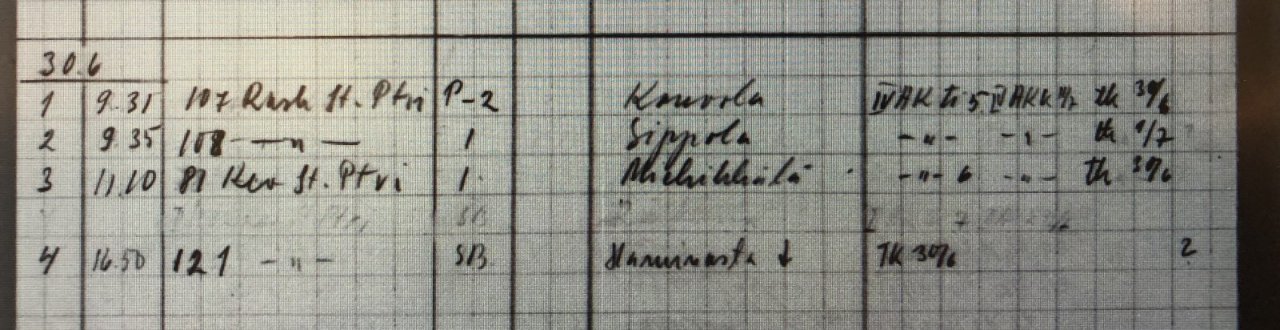 30.6
1 9.31 107 Rask St. Ptri P-2 Kouvola IV AK ti 5 II AKK 4/7 tk 30/6
2 9.35 108 — „ — 1 Sippola - „ - - „ - tk 1/7
3 11.10 81 Kev St. Ptri 1 Miehikkälä - „ - 6 - „ - tk 30/6
SB
4 16.50 121 - „ - SB. Haminasta ↓ TK 30/6 2